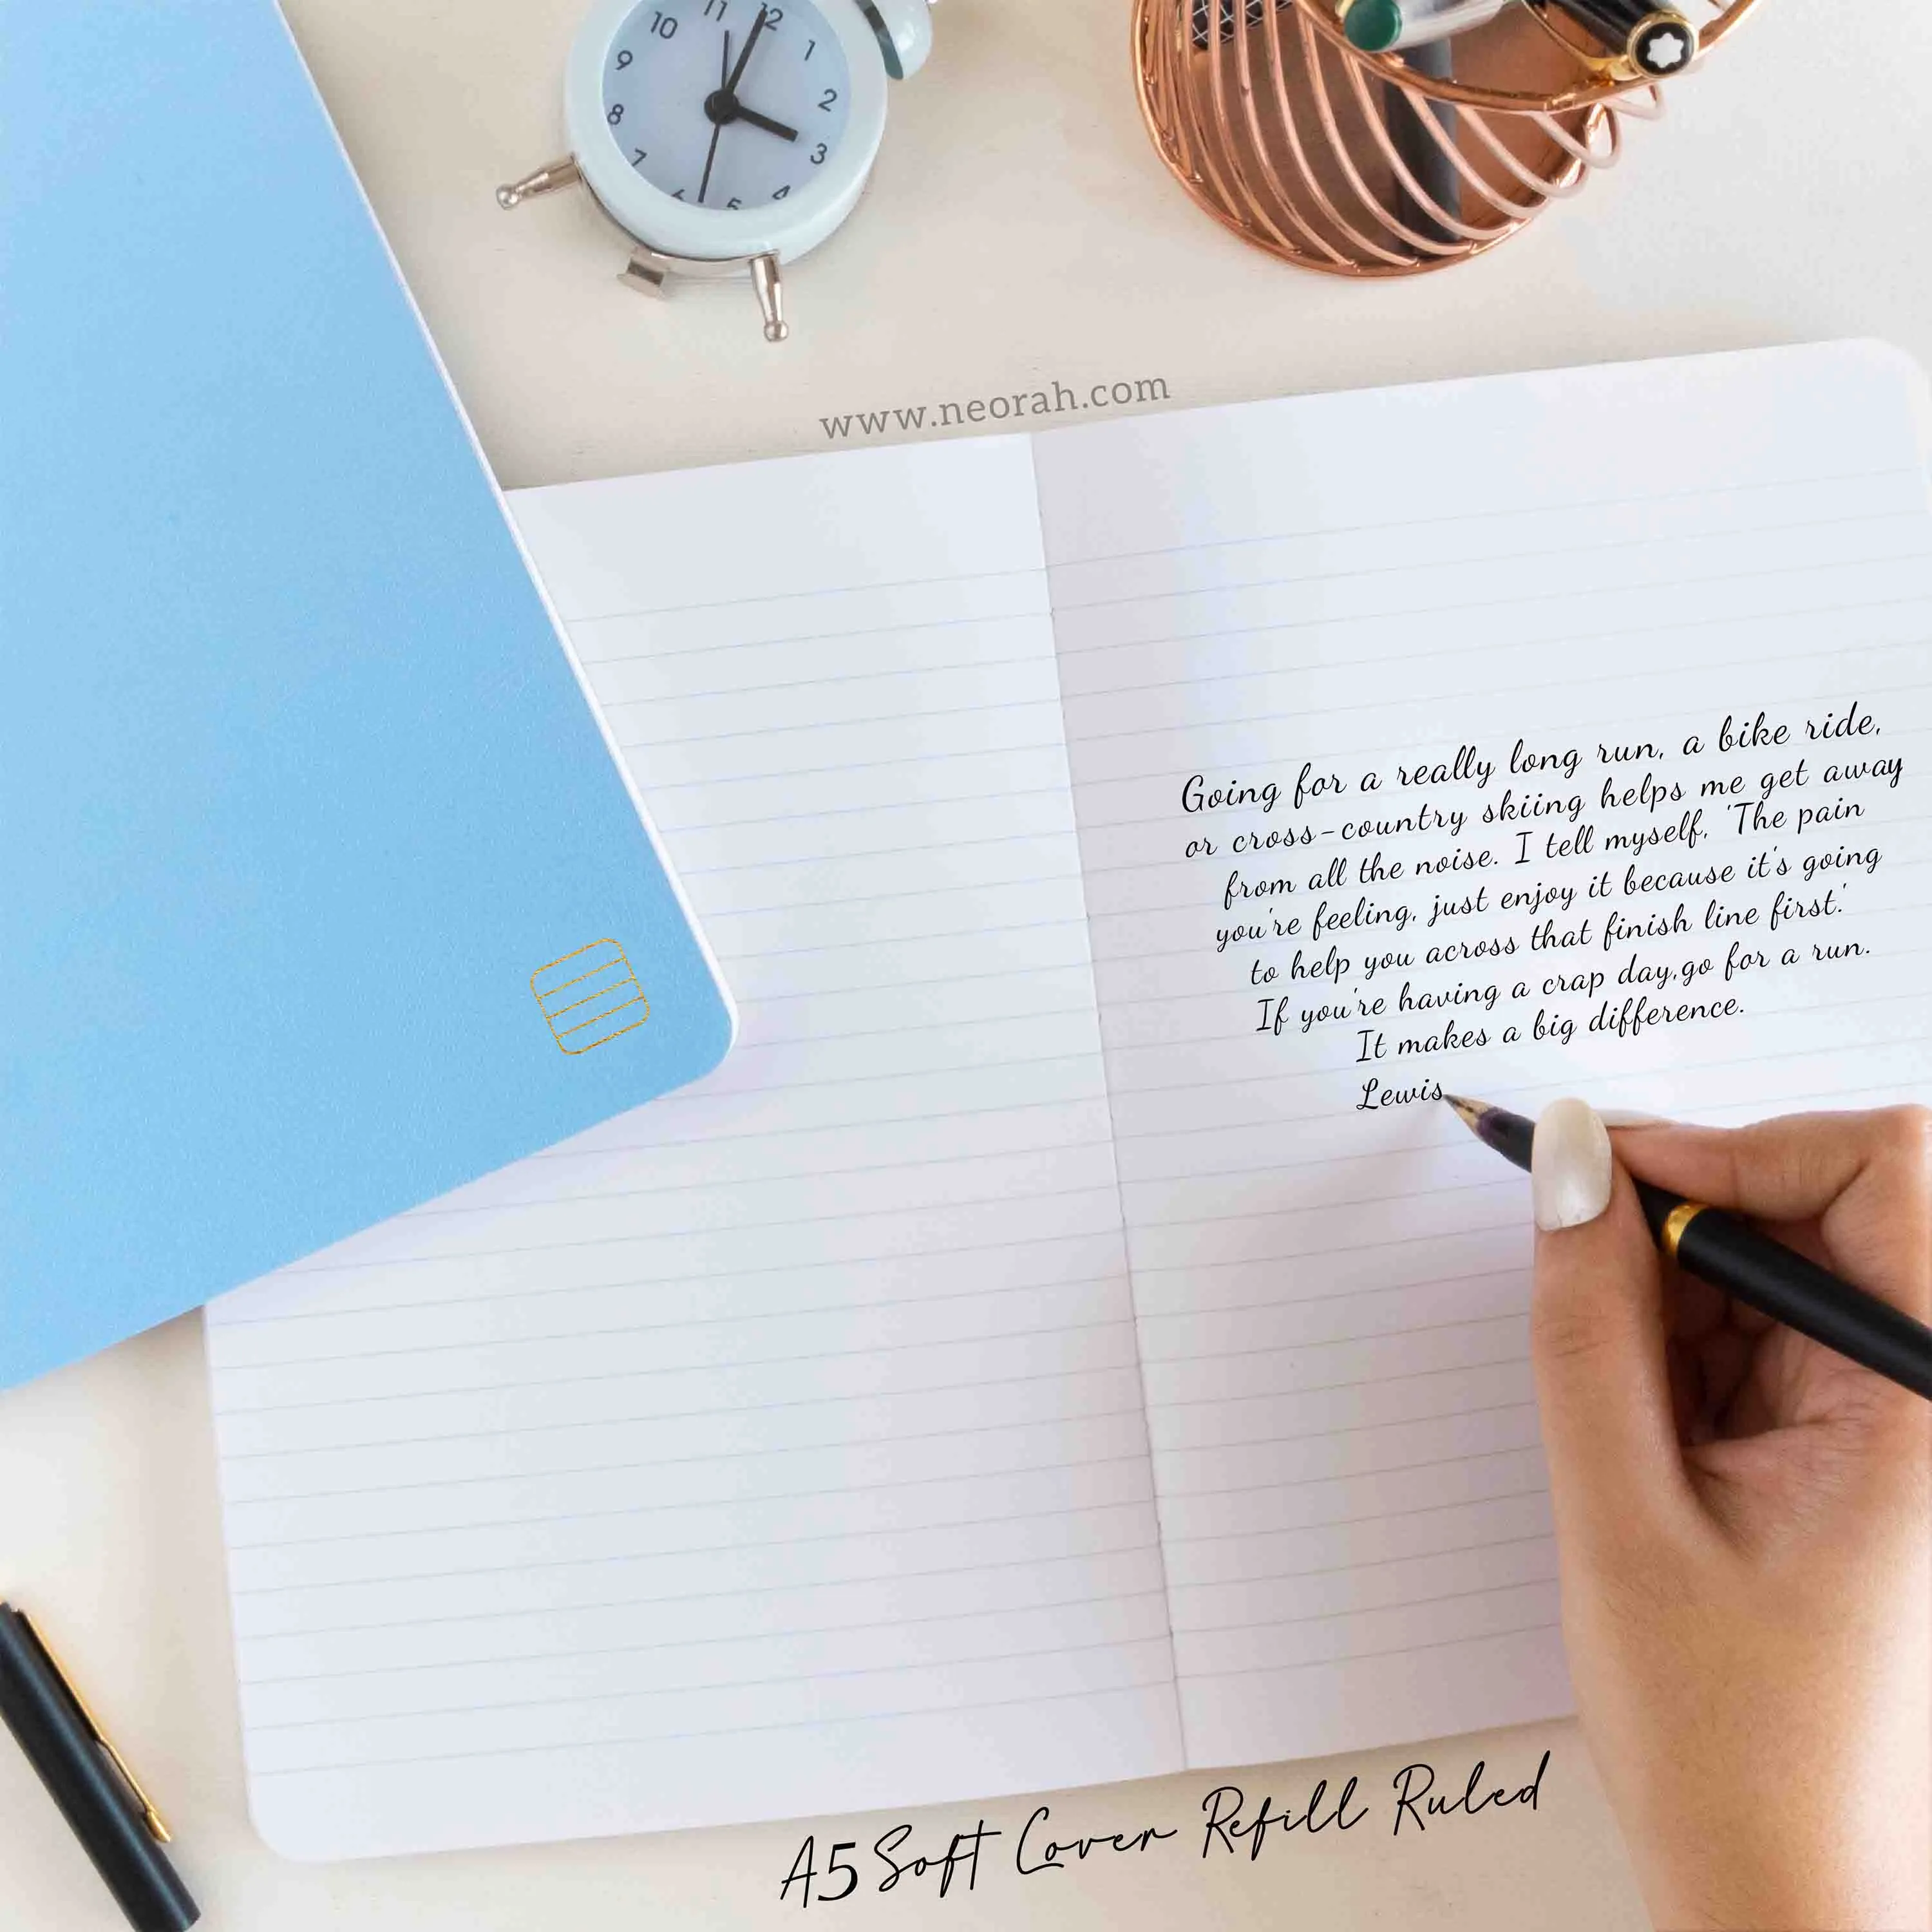 11 12 1 2 3 4 5 6 7 8 9 10
www.neorah.com
Going for a really long run, a bike ride,
or cross-country skiing helps me get away
from all the noise. I tell myself, 'The pain
you're feeling, just enjoy it because it's going
to help you across that finish line first.'
If you're having a crap day,go for a run.
It makes a big difference.
Lewis
A5 Soft Cover Refill Ruled